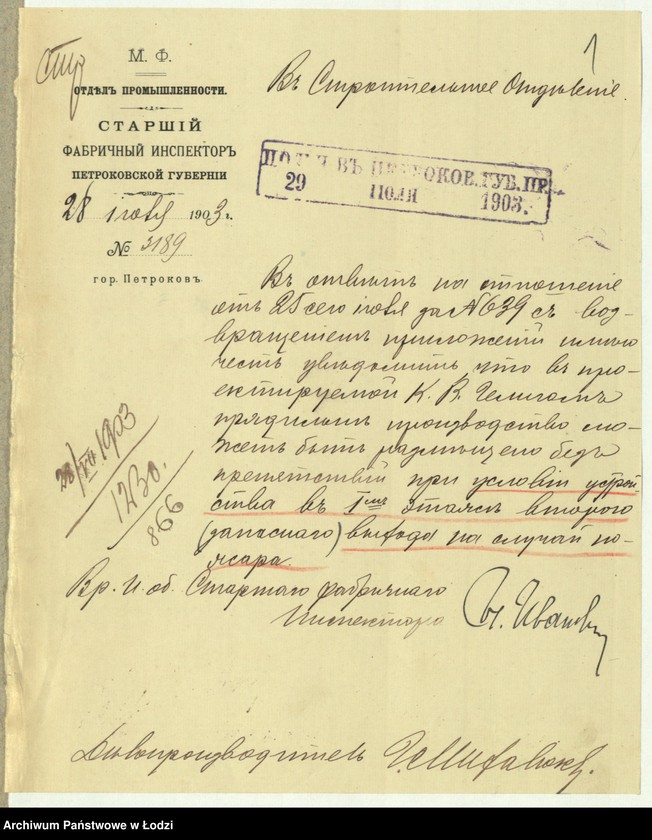 1
М. Ф.
ОТДѢЛЪ ПРОМЫШЛЕННОСТИ.
СТАРШІЙ
ФАБРИЧНЫЙ ИНСПЕКТОРЪ
ПЕТРОКОВСКОЙ ГУБЕРНІИ
28 іюля 1903 г.
№ 3189
гор. Петроковъ
Въ Строительное Отдѣленіе.
ВЪ ГУБ. ПР.
29 ІЮЛЯ 1903.
Въ отвѣтъ на отношеніе
отъ 25 сего іюля за № 639 съ воз-
вращеніемъ приложеній имѣю
честь увѣдомить что въ про-
ектируемой К. В.
прядильнѣ производство мо-
жетъ быть размѣщено безъ
препятствій при условіи устрой
ства въ Iмъ этажѣ второго
(запаснаго) выхода на случай по-
жара.
28/VII 1903
1230.
866
Вр. И. об. Старшаго фабричнаго
Инспектора Ивановъ
Дѣлопроизводитель
Archiwum Państwowe w Łodzi